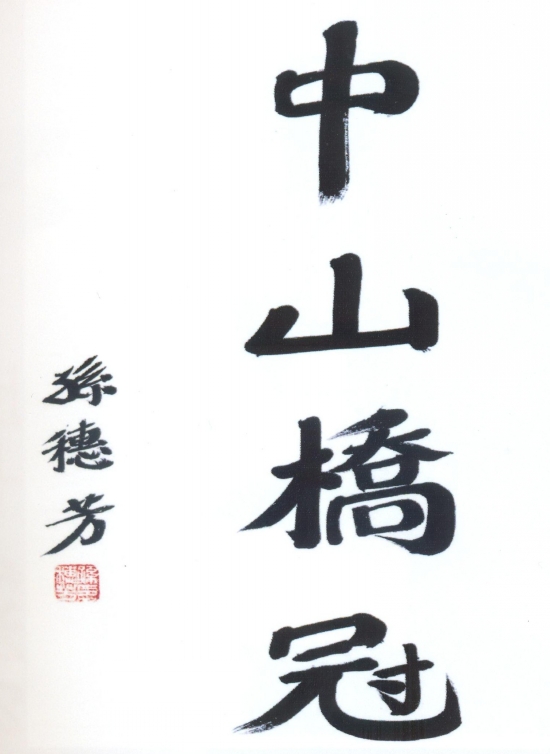 中山橋冠
孫穗芳